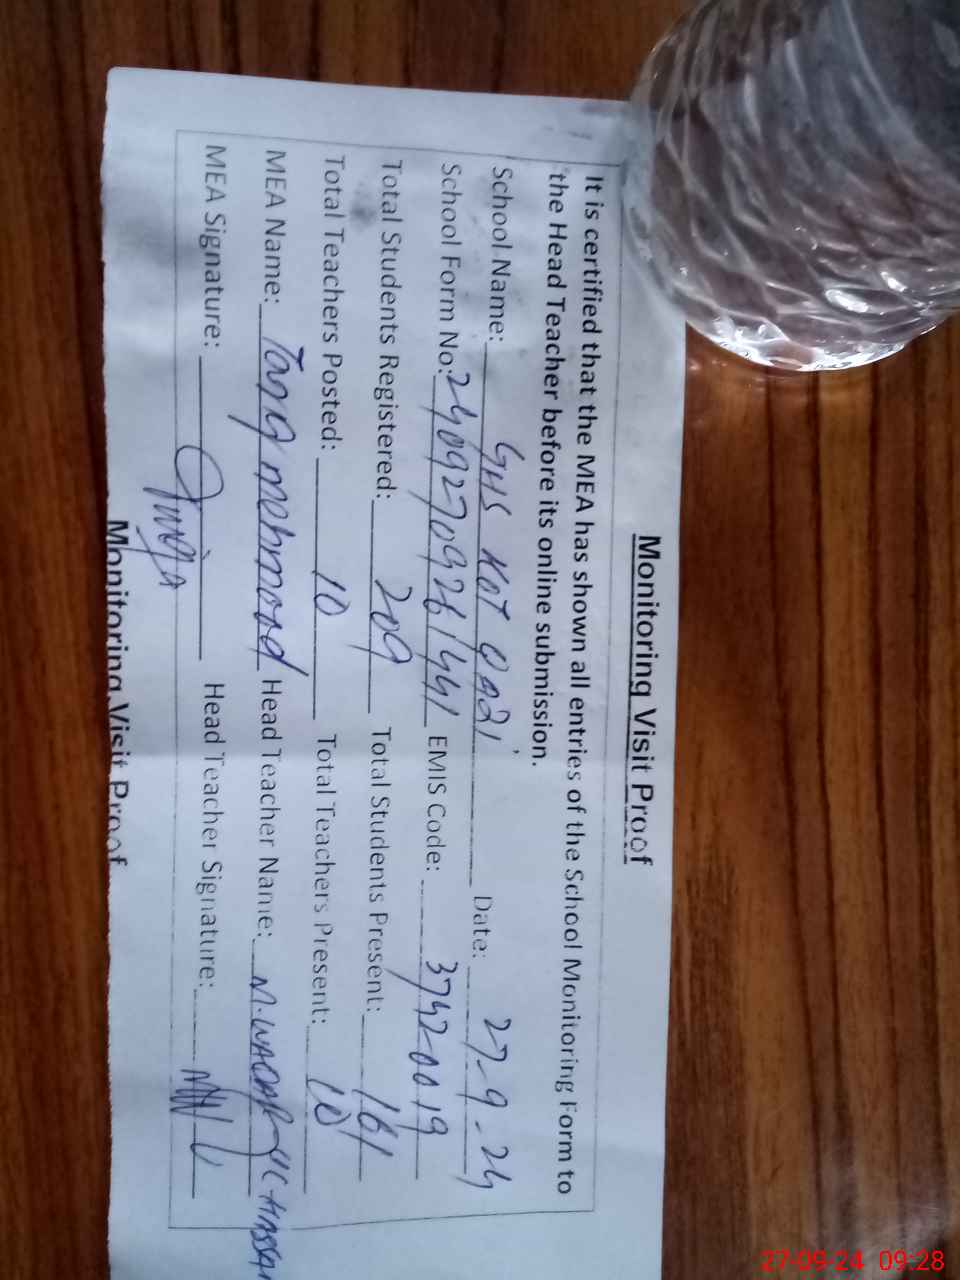 Monitoring Visit Proof
It is certified that the MEA has shown all entries of the School Monitoring Form to
the Head Teacher before its online submission.
School Name: GHS KOT Qazi Date: 27-9-24
School Form No: 240927093261441 EMIS Code: 37420019
Total Students Registered: 209 Total Students Present: 161
Total Teachers Posted: 10 Total Teachers Present: 10
MEA Name: Tariq mehmood Head Teacher Name: M. WAQAR UL HASSAN
MEA Signature: Head Teacher Signature:
Monitoring Visit Proof
27-09-24 09:28